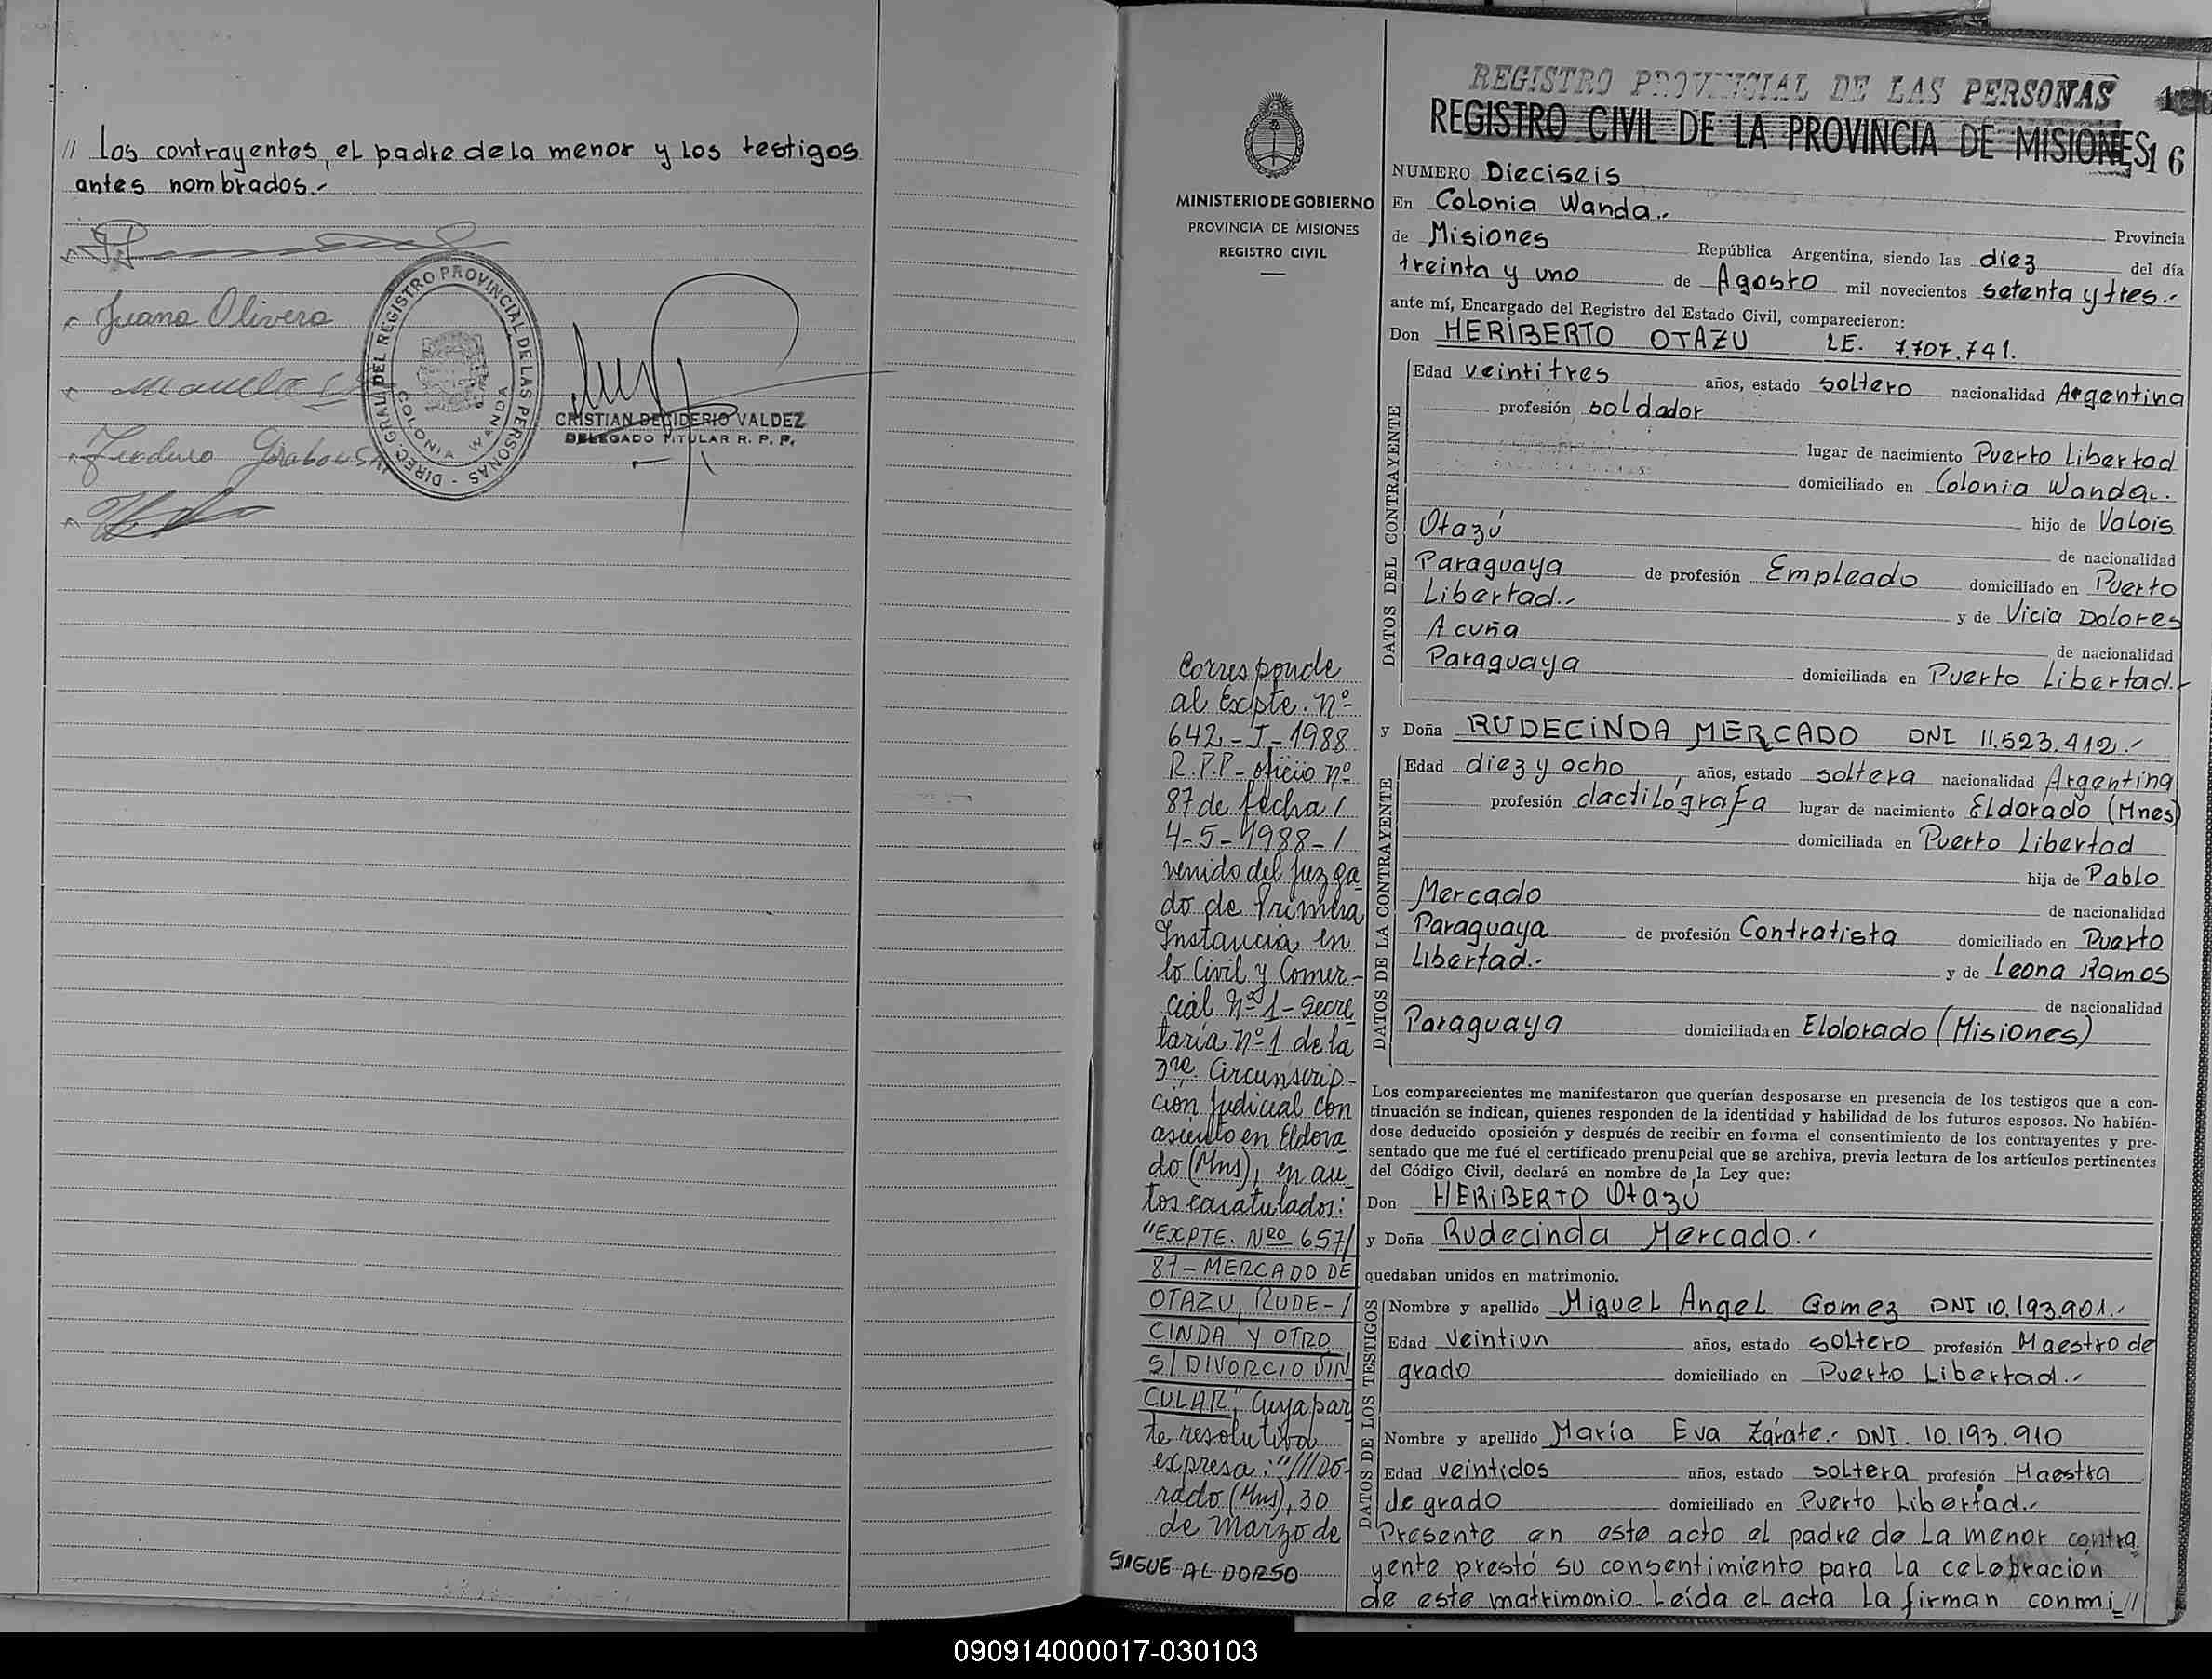 // Los contrayentes, el padre de la menor y los testigos
antes nombrados.-
Juana Olivera
Teodoro
DIREC. GRAL. DEL REGISTRO PROVINCIAL DE LAS PERSONAS -
COLONIA WANDA
CRISTIAN DECIDERIO VALDEZ
DELEGADO TITULAR R. P. P.
MINISTERIO DE GOBIERNO
PROVINCIA DE MISIONES
REGISTRO CIVIL
Corresponde
al Expte. Nº
642-J-1988
R.P.P- oficio nº
87 de fecha /
4-5-1988- /
venido del Juzga
do de Primera
Instancia en
lo Civil y Comer-
cial Nº 1- Secre
taría Nº 1 de la
3ra Circunscrip-
ción Judicial con
asiento en Eldora
do (Mns), en au
tos caratulados:
"EXPTE. Nro 657/
87- MERCADO DE
OTAZU, RUDE- /
CINDA Y OTRO
S/ DIVORCIO VIN
CULAR", Cuya par
te resolutiva
expresa: "///DO-
rado (Mns), 30
de marzo de
SIGUE AL DORSO
REGISTRO PROVINCIAL DE LAS PERSONAS
REGISTRO CIVIL DE LA PROVINCIA DE MISIONES
16
NUMERO Dieciseis
En Colonia Wanda.-
Provincia
de Misiones República Argentina, siendo las diez del día
treinta y uno de Agosto mil novecientos setenta y tres.-
ante mí, Encargado del Registro del Estado Civil, comparecieron:
Don HERIBERTO OTAZU LE. 7.707.741.
DATOS DEL CONTRAYENTE
Edad veintitres años, estado soltero nacionalidad Argentina
profesión soldador
lugar de nacimiento Puerto Libertad
domiciliado en Colonia Wanda.-
hijo de Valois
Otazú
de nacionalidad
Paraguaya de profesión Empleado domiciliado en Puerto
Libertad.- y de Vicia Dolores
Acuña
de nacionalidad
Paraguaya domiciliada en Puerto Libertad.-
y Doña RUDECINDA MERCADO DNI 11.523.412.-
DATOS DE LA CONTRAYENTE
Edad diez y ocho, años, estado soltera nacionalidad Argentina
profesión dactilógrafa lugar de nacimiento Eldorado (Mnes)
domiciliada en Puerto Libertad
hija de Pablo
Mercado
de nacionalidad
Paraguaya de profesión Contratista domiciliado en Puerto
Libertad.- y de Leona Ramos
de nacionalidad
Paraguaya domiciliada en Eldorado (Misiones)
Los comparecientes me manifestaron que querían desposarse en presencia de los testigos que a con-
tinuación se indican, quienes responden de la identidad y habilidad de los futuros esposos. No habién-
dose deducido oposición y después de recibir en forma el consentimiento de los contrayentes y pre-
sentado que me fué el certificado prenupcial que se archiva, previa lectura de los artículos pertinentes
del Código Civil, declaré en nombre de la Ley que:
Don HERIBERTO Otazú
y Doña Rudecinda Mercado.-
quedaban unidos en matrimonio.
DATOS DE LOS TESTIGOS
Nombre y apellido Miguel Angel Gomez DNI 10.193.901.-
Edad Veintiun años, estado soltero profesión Maestro de
grado domiciliado en Puerto Libertad.-
Nombre y apellido María Eva Zárate.- DNI. 10.193.910
Edad veintidos años, estado soltera profesión Maestra
de grado domiciliado en Puerto Libertad.-
Presente en este acto el padre de la menor contra
yente prestó su consentimiento para la celebración
de este matrimonio. Leída el acta la firman conmi_//
090914000017-030103